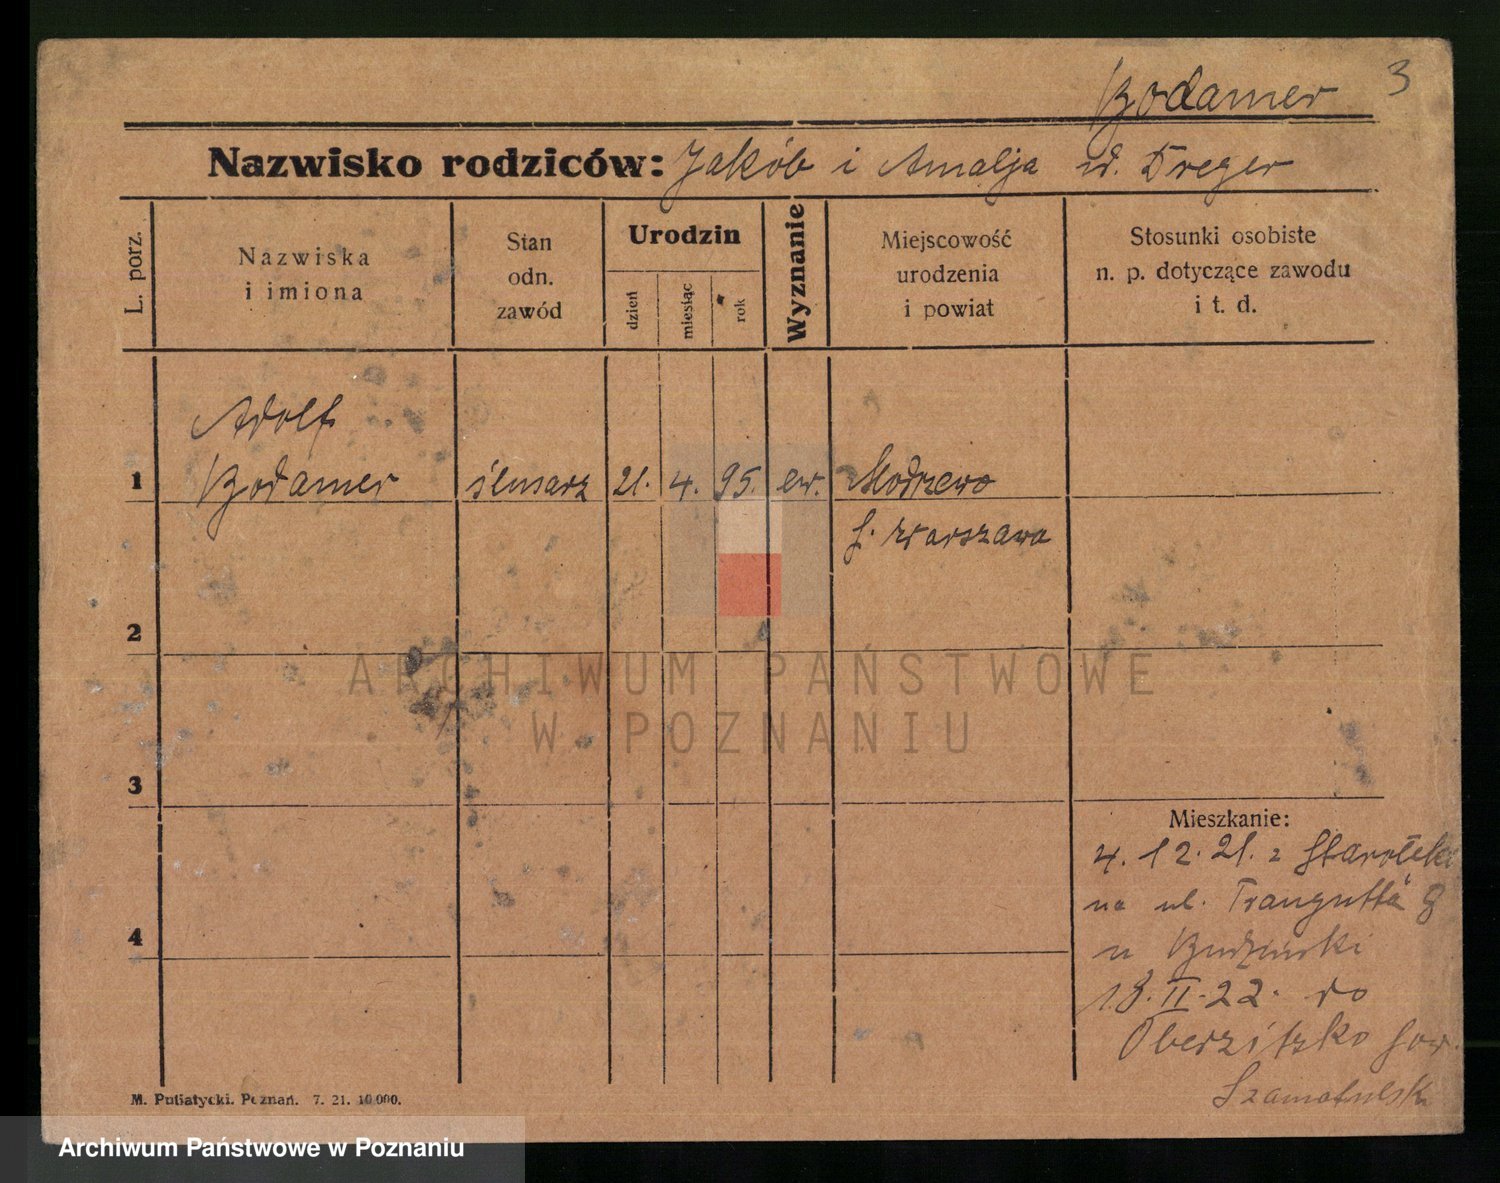 Bodamer 3
Nazwisko rodziców: Jakób i Amalja Dreger
L. porz.
Nazwiska
i imiona
Stan
odn.
zawód
Urodzin
dzień
miesiąc
rok
Wyznanie
Miejscowość
urodzenia
i powiat
Stosunki osobiste
n. p. dotyczące zawodu
i t. d.
Adolf
1 Bodamer ślusarz 21. 4. 95. ew. Modrzewo
Warszawa
2
ARCHIWUM PAŃSTWOWE
W POZNANIU
3
Mieszkanie:
4. 12. 21. z Starołęki
na ul. Traugutta 8
4 u
II. 22. do
Oberzitzko pow.
Szamotulski
M. Putiatycki. Poznań. 7. 21. 10.000.
Archiwum Państwowe w Poznaniu